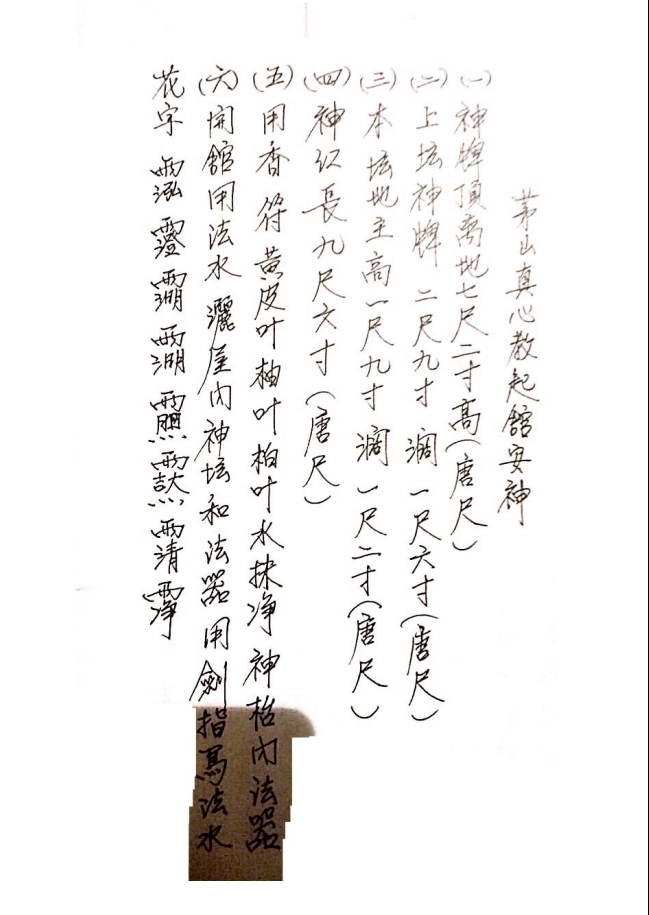 茅山真心教起舘安神
(一)神牌頂离地七尺二寸高(唐尺)
(二)上坛神牌 二尺九寸 濶一尺六寸(唐尺)
(三)本坛地主高一尺九寸 濶一尺二寸(唐尺)
(四)神红長九尺六寸(唐尺)
(五)用香 符 黄皮叶 柚叶 柏叶水抹净 神枱内法器
(六)開舘用法水 灑屋内神坛和法器 用劍指写法水
花字